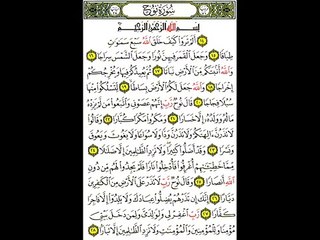 سُورَةُ نُوحٍ
بِسْمِ اللَّهِ الرَّحْمَٰنِ الرَّحِيمِ
أَلَمْ تَرَوْا كَيْفَ خَلَقَ اللَّهُ سَبْعَ سَمَٰوَٰتٍ
طِبَاقًا وَجَعَلَ الْقَمَرَ فِيهِنَّ نُورًا وَجَعَلَ الشَّمْسَ سِرَاجًا
وَاللَّهُ أَنبَتَكُم مِّنَ الْأَرْضِ نَبَاتًا ثُمَّ يُعِيدُكُمْ فِيهَا وَيُخْرِجُكُمْ
إِخْرَاجًا وَاللَّهُ جَعَلَ لَكُمُ الْأَرْضَ بِسَاطًا لِّتَسْلُكُوا مِنْهَا
سُبُلًا فِجَاجًا قَالَ نُوحٌ رَّبِّ إِنَّهُمْ عَصَوْنِي وَاتَّبَعُوا مَن لَّمْ يَزِدْهُ
مَالُهُ وَوَلَدُهُ إِلَّا خَسَارًا وَمَكَرُوا مَكْرًا كُبَّارًا وَقَالُوا
لَا تَذَرُنَّ ءَالِهَتَكُمْ وَلَا تَذَرُنَّ وَدًّا وَلَا سُوَاعًا وَلَا يَغُوثَ وَيَعُوقَ
وَنَسْرًا وَقَدْ أَضَلُّوا كَثِيرًا وَلَا تَزِدِ الظَّٰلِمِينَ إِلَّا ضَلَٰلًا
مِّمَّا خَطِيٓـَٰٔتِهِمْ أُغْرِقُوا فَأُدْخِلُوا نَارًا فَلَمْ يَجِدُوا لَهُم مِّن دُونِ
اللَّهِ أَنصَارًا وَقَالَ نُوحٌ رَّبِّ لَا تَذَرْ عَلَى الْأَرْضِ مِنَ الْكَٰفِرِينَ
دَيَّارًا إِنَّكَ إِن تَذَرْهُمْ يُضِلُّوا عِبَادَكَ وَلَا يَلِدُوا إِلَّا فَاجِرًا
كَفَّارًا رَّبِّ اغْفِرْ لِي وَلِوَٰلِدَيَّ وَلِمَن دَخَلَ بَيْتِيَ
مُؤْمِنًا وَلِلْمُؤْمِنِينَ وَالْمُؤْمِنَٰتِ وَلَا تَزِدِ الظَّٰلِمِينَ إِلَّا تَبَارًا